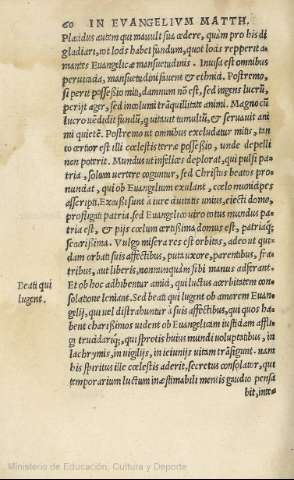 60 IN EVANGELIVM MATTH.
Placidus autem qui mauult sua cedere, quàm pro his di
gladiari, tot locis habet fundum, quot locis repperit a-
mantes Euangelicæ mansuetudinis. Inuisa est omnibus
peruicacia, mansuetudini fauent & ethnici. Postremo,
si perit possessio miti, damnum nō est, sed ingens lucrū,
perijt ager, sed incolumi trāquillitate animi. Magno cū
lucro uēdidit fundū, q uitauit tumultū, & seruauit ani
mi quietē. Postremo ut omnibus excludatur mitis, tan
to certior est illi cœlestis terræ possessio, unde depelli
non poterit. Mundus ut infelices deplorat, qui pulsi pa-
tria, solum uertere coguntur, sed Christus beatos pro-
nuntiat, qui ob Euangelium exulant, cœlo municipes
ascripti. Excussi sunt à iure ciuitatis unius, eiecti domo,
profligati patria, sed Euangelico uiro totus mundus pa
tria est, & pijs cœlum certissima domus est, patriaq́;
securissima. Vulgo misera res est orbitas, adeo ut qui-
dam orbati suis affectibus, puta uxore, parentibus, fra
tribus, aut liberis, nonnunquam sibi manus adferant.
Et ob hoc adhibentur amici, qui luctus acerbitatem con
Beati qui
lugent.
solatione leniant. Sed beati qui lugent ob amorem Euan-
gelij, qui uel distrahuntur à suis affectibus, qui quos ha-
bent charissimos uident ob Euangelicam iusticiam affli
gi trucidariq́;, qui spretis huius mundi uoluptatibus, in
lachrymis, in uigilijs, in ieiunijs uitam trāsigunt. nam
his spiritus ille cœlestis aderit, secretus consolator, qui
temporarium luctum inæstimabili mentis gaudio pensa
bit, inte-
Ministerio de Educación, Cultura y Deporte